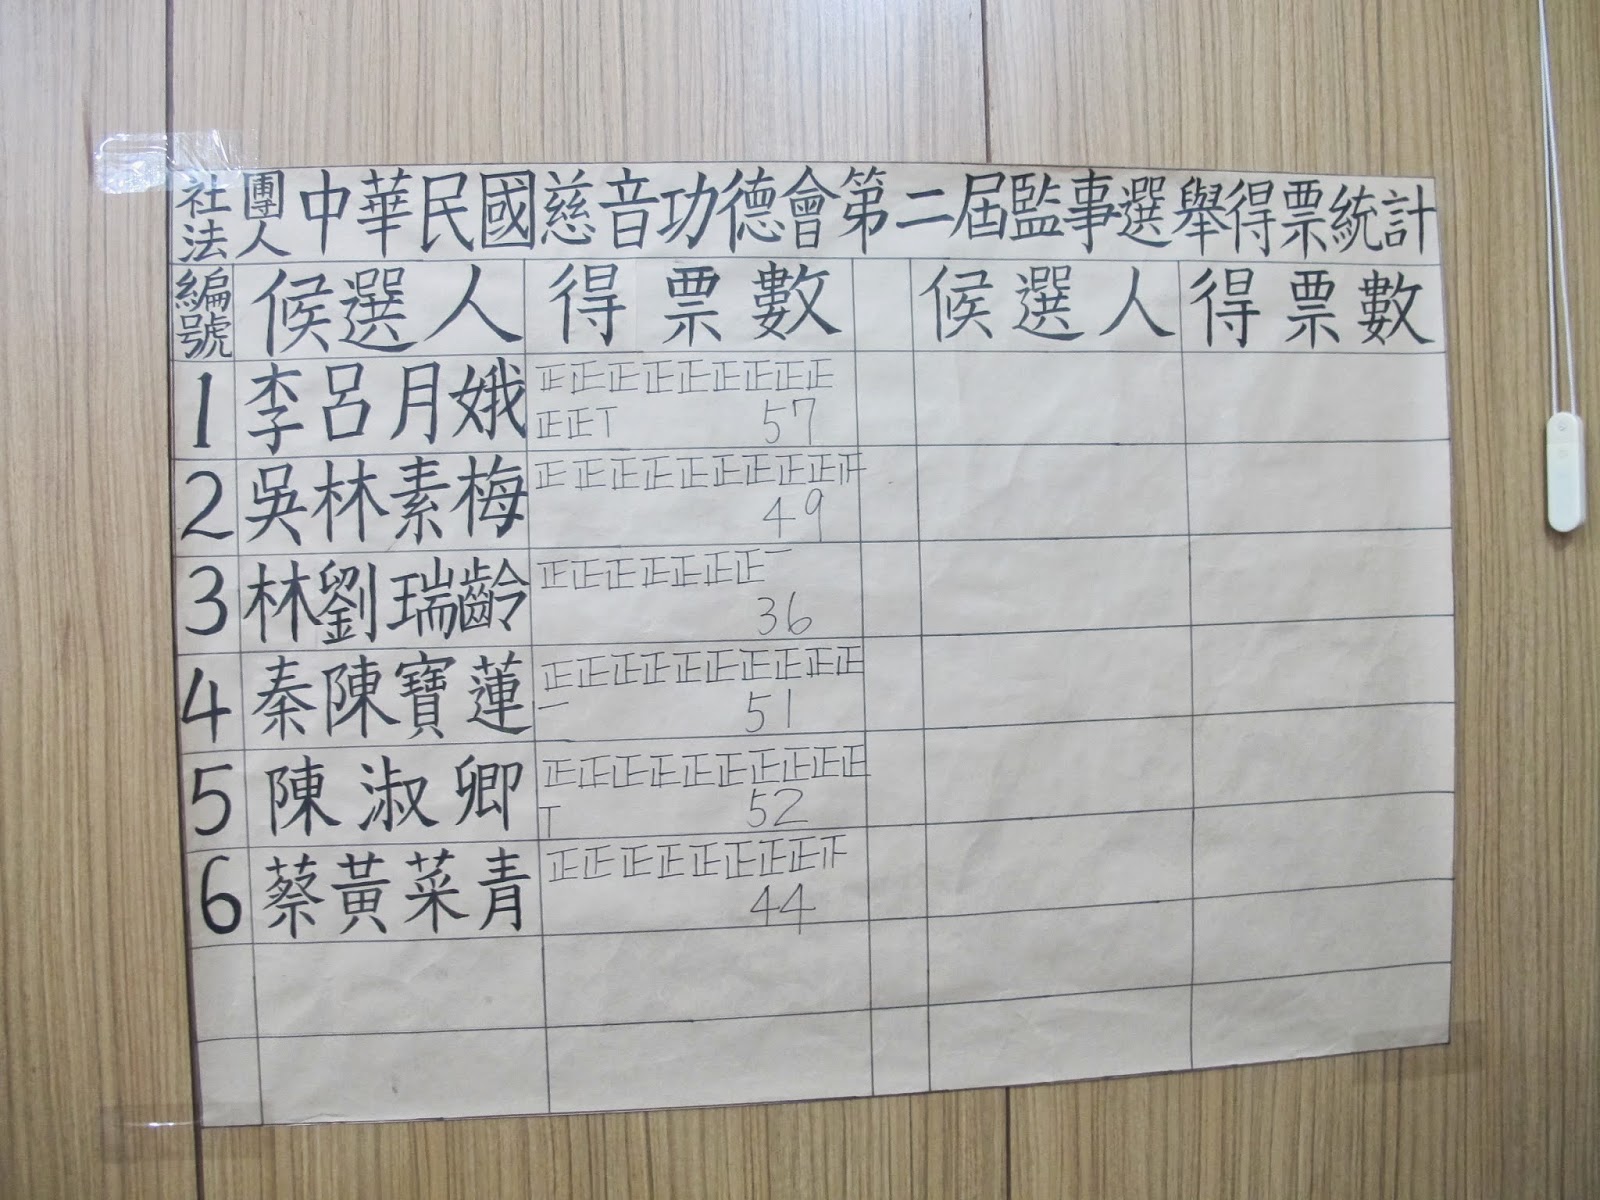 社團法人中華民國慈音功德會第二屆監事選舉得票統計
編號 候選人 得票數 候選人 得票數
1 李呂月娥 正正正正正正正正正
正正T 57
2 吳林素梅 正正正正正正正正正正
49
3 林劉瑞齡 正正正正正正正一
36
4 秦陳寶蓮 正正正正正正正正正正
一 51
5 陳淑卿 正正正正正正正正正正
T 52
6 蔡黃菜青 正正正正正正正正正
44